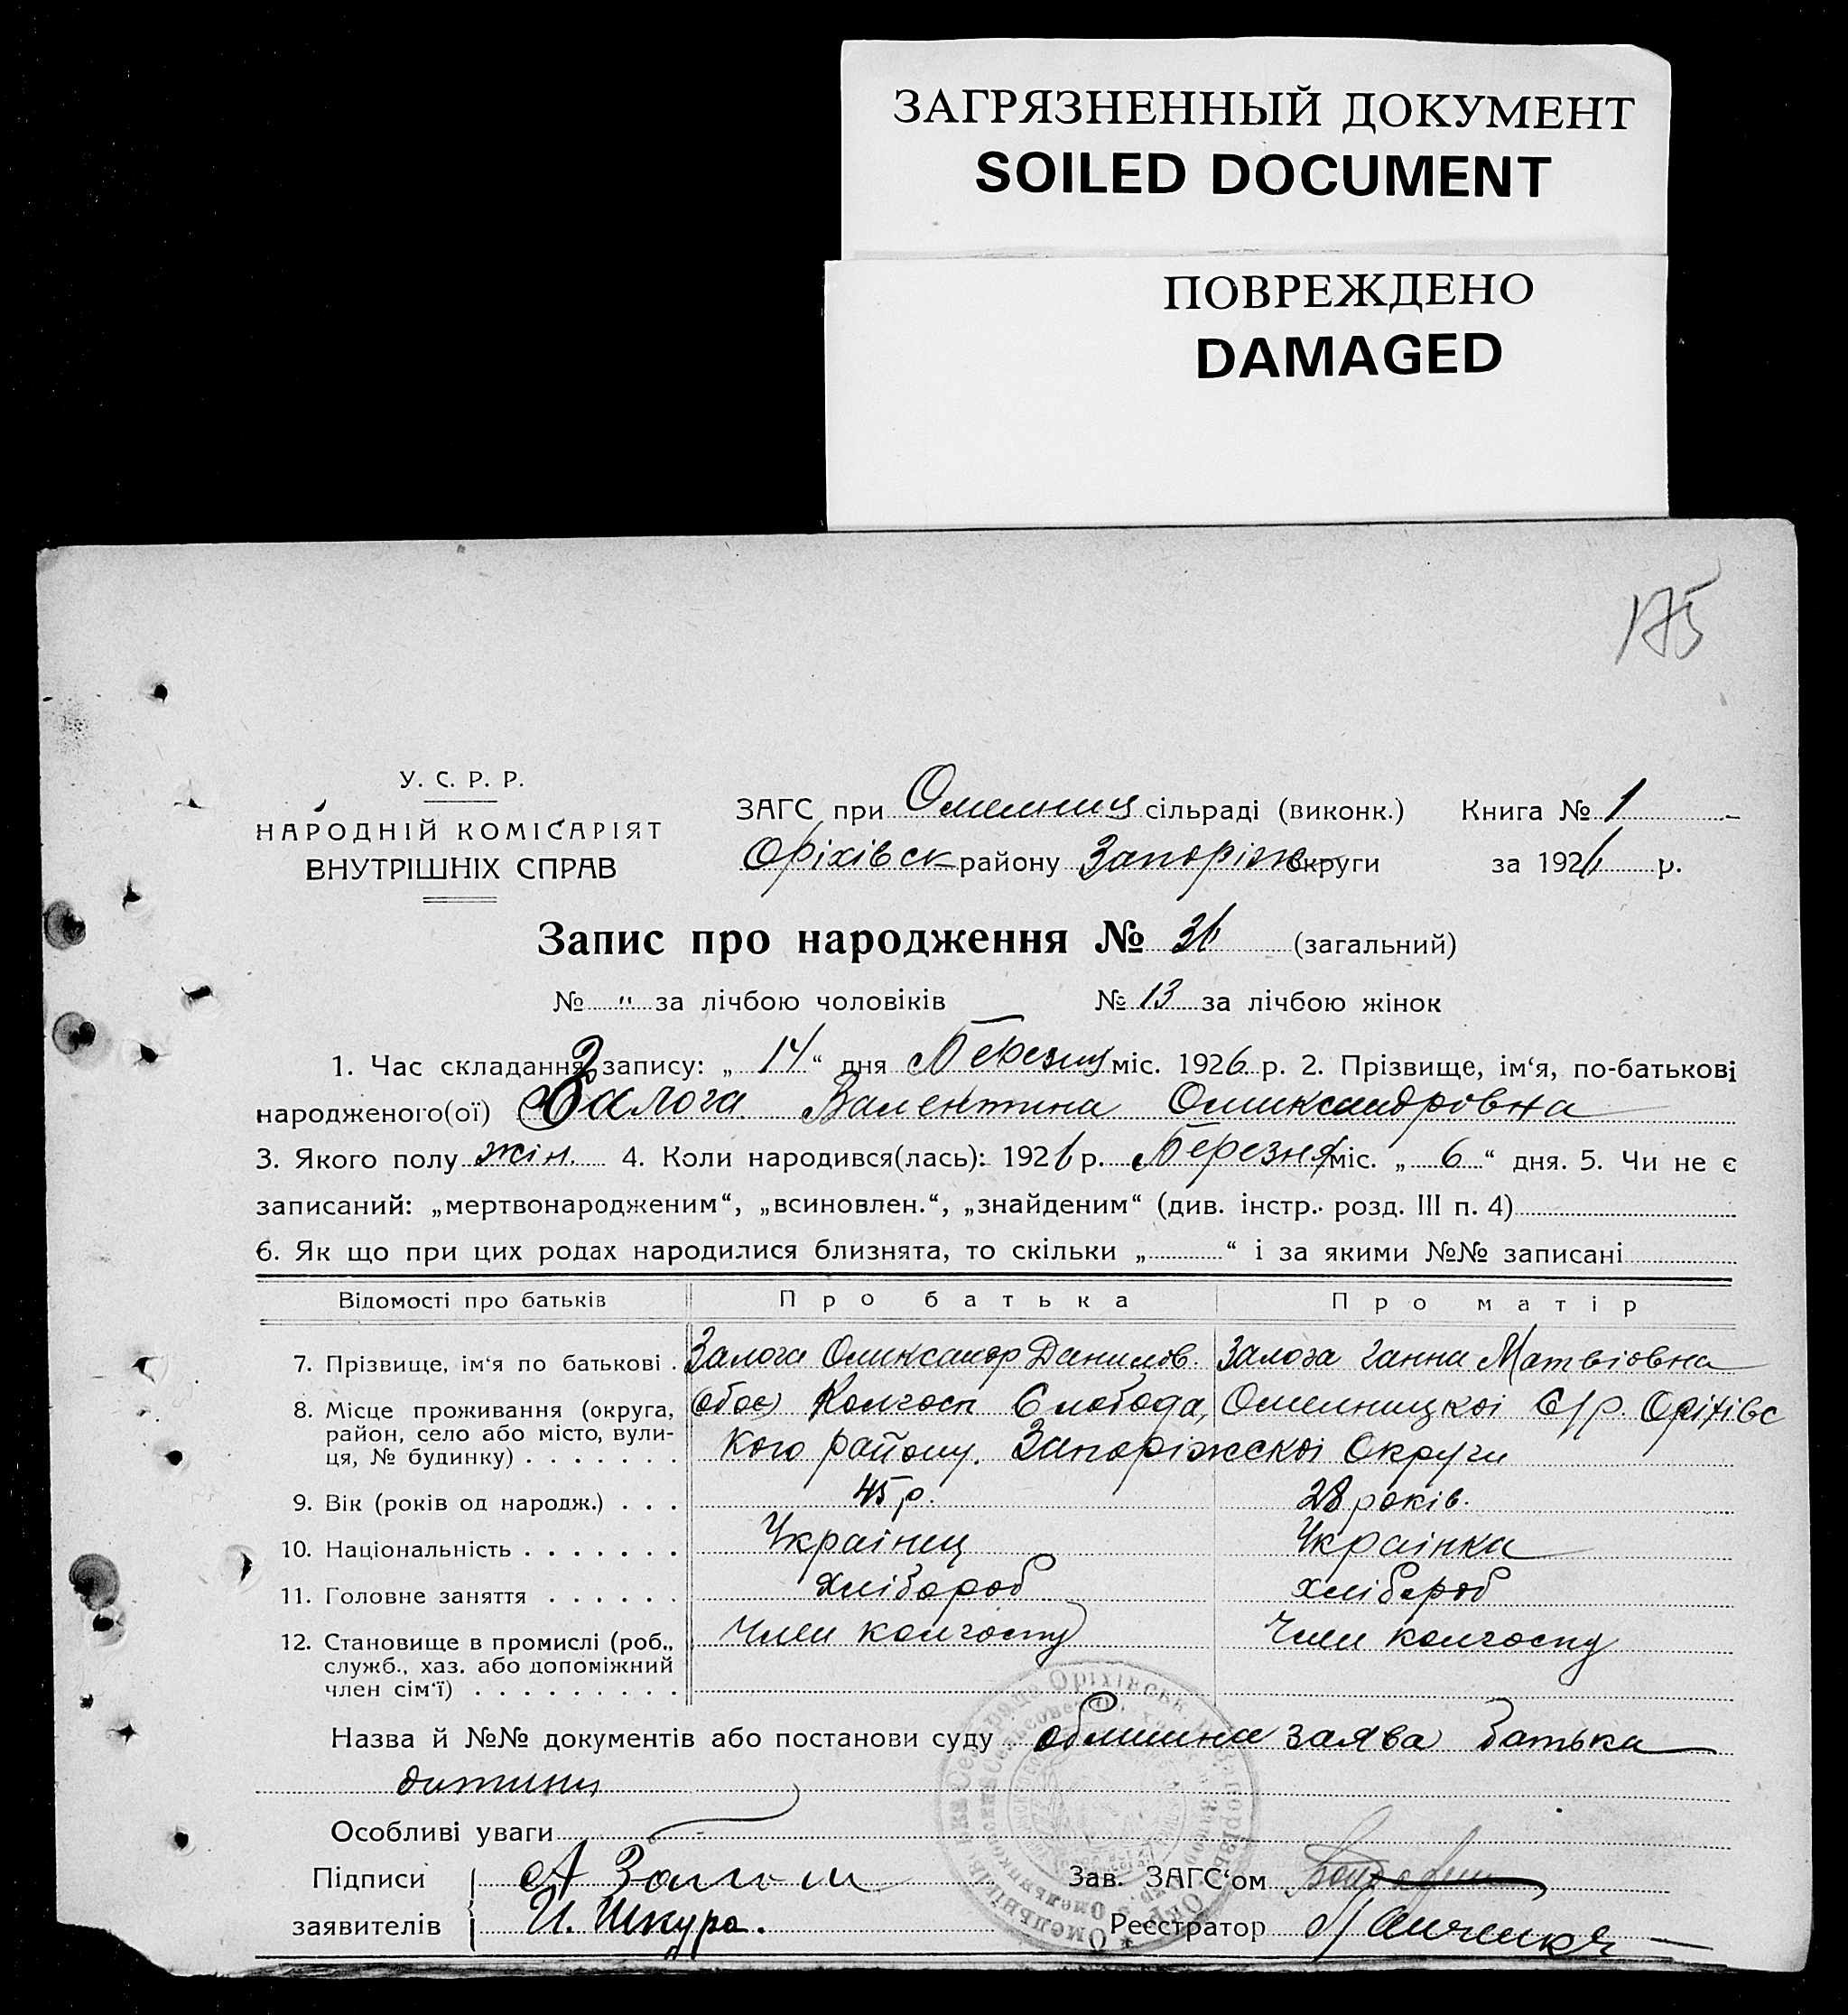 ЗАГРЯЗНЕННЫЙ ДОКУМЕНТ
SOILED DOCUMENT
ПОВРЕЖДЕНО
DAMAGED
175
У. С. Р. Р.
НАРОДНІЙ КОМІСАРІЯТ
ВНУТРІШНІХ СПРАВ
ЗАГС при Омельниц сільраді (виконк.) Книга № 1
Оріхівск району Запоріж округи за 1926 р.
Запис про народження № 36 (загальний)
№ " за лічбою чоловіків № 13 за лічбою жінок
1. Час складання запису: „ 14 “ дня Березня міс. 1926 р. 2. Прізвище, ім‘я, по-батькові
народженого(ої) Залога Валентина Олександровна
3. Якого полу жін. 4. Коли народився(лась): 1926 р. Березня міс. „ 6 “ дня. 5. Чи не є
записаний: „мертвонародженим“, „всиновлен.“, „знайденим“ (див. інстр. розд. III п. 4)
6. Як що при цих родах народилися близнята, то скільки „ “ і за якими №№ записані
Відомості про батьків Про батька Про матір
7. Прізвище, ім‘я по батькові . Залога Олександр Данилов. Залога Ганна Матвіовна
8. Місце проживання (округа, район, село або місто, вулиця, № будинку) . . . . . . . обоє Колгосп Слобода, Омельницкоі С/р. Оріхівс
кого району. Запоріжскоі Округи
9. Вік (років од народж.) . . . 45 р. 28 років.
10. Національність . . . . . . . Украінец Украінка
11. Головне заняття . . . . . . хлібороб хлібороб
12. Становище в промислі (роб., служб., хаз. або допоміжний член сім‘ї) . . . . . . . . . Член колгоспу Член колгоспу
Назва й №№ документів або постанови суду заява батька
дитини
Особливі уваги
Підписи А Залога Зав. ЗАГС‘ом
заявителів И. Шкура. Реєстратор